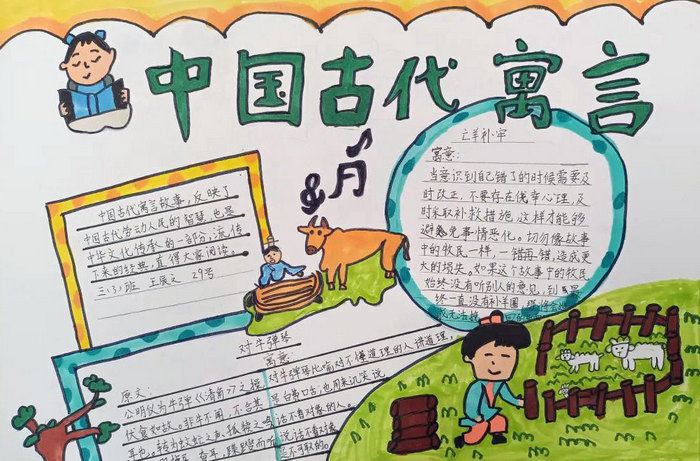 中国古代寓言
中国古代寓言故事,反映了
中国古代劳动人民的智慧,也是
中华文化传承的一部分,流传
下来的经典,值得大家阅读。
三(3)班 王辰文 29号
亡羊补牢
寓意:
当意识到自己错了的时候需要及
时改正,不要存在侥幸心理,及
时采取补救措施,这样才能够
避免事情恶化。切勿像故事
中的牧民一样,一错再错,造成更
大的损失。如果这个故事中的牧民
始终没有听别人的意见,到最
终一直没有补羊圈,
对牛弹琴
寓意
对牛弹琴比喻对不懂道理的人讲道理,
也用来讥笑说
话不看对象的人。
说话不看对象
是不可取的。
原文:
公明仪为牛弹《清角》之操
伏食如故。非牛不闻,不合其
耳也。转为蚊虻之声,孤犊之鸣
奋耳,蹀躞而听